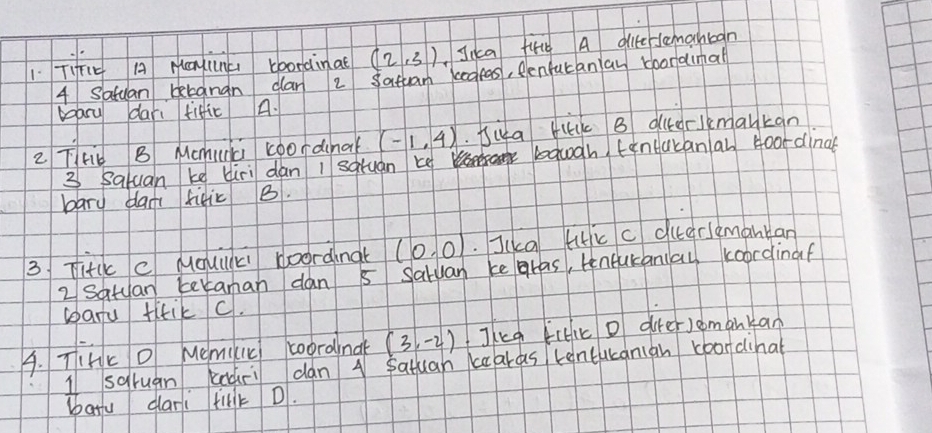 1. Titik A Memiliki koordinat (2,3). Jika titik A diterjemahkan
4 satuan kekanan dan 2 satuan keatas, tentukanlah koordinat
baru dari titik A.
2 Titik B Memiliki koordinat (-1,4). Jika titik B diterjemahkan
3 satuan ke kiri dan 1 satuan ke bawah, tentukanlah koordinat
baru dari titik B.
3. Titik C Memiliki koordinat (0,0). Jika titik C diterjemahkan
2 satuan kekanan dan 5 satuan ke atas, tentukanlah koordinat
baru titik C.
4. Titik D Memiliki koordinat (3,-2). Jika titik D diterjemahkan
1 satuan kekiri dan 4 satuan keatas, tentukanlah koordinat
baru dari titik D.